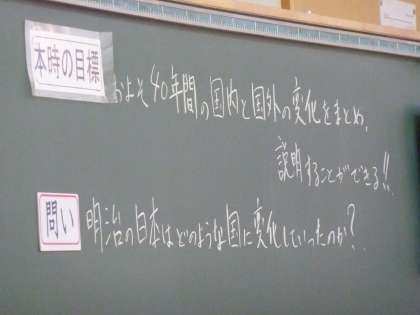 本時の目標
およそ40年間の国内と国外の変化をまとめ、
説明することができる!!
問い
明治の日本はどのような国に変化していったのか?